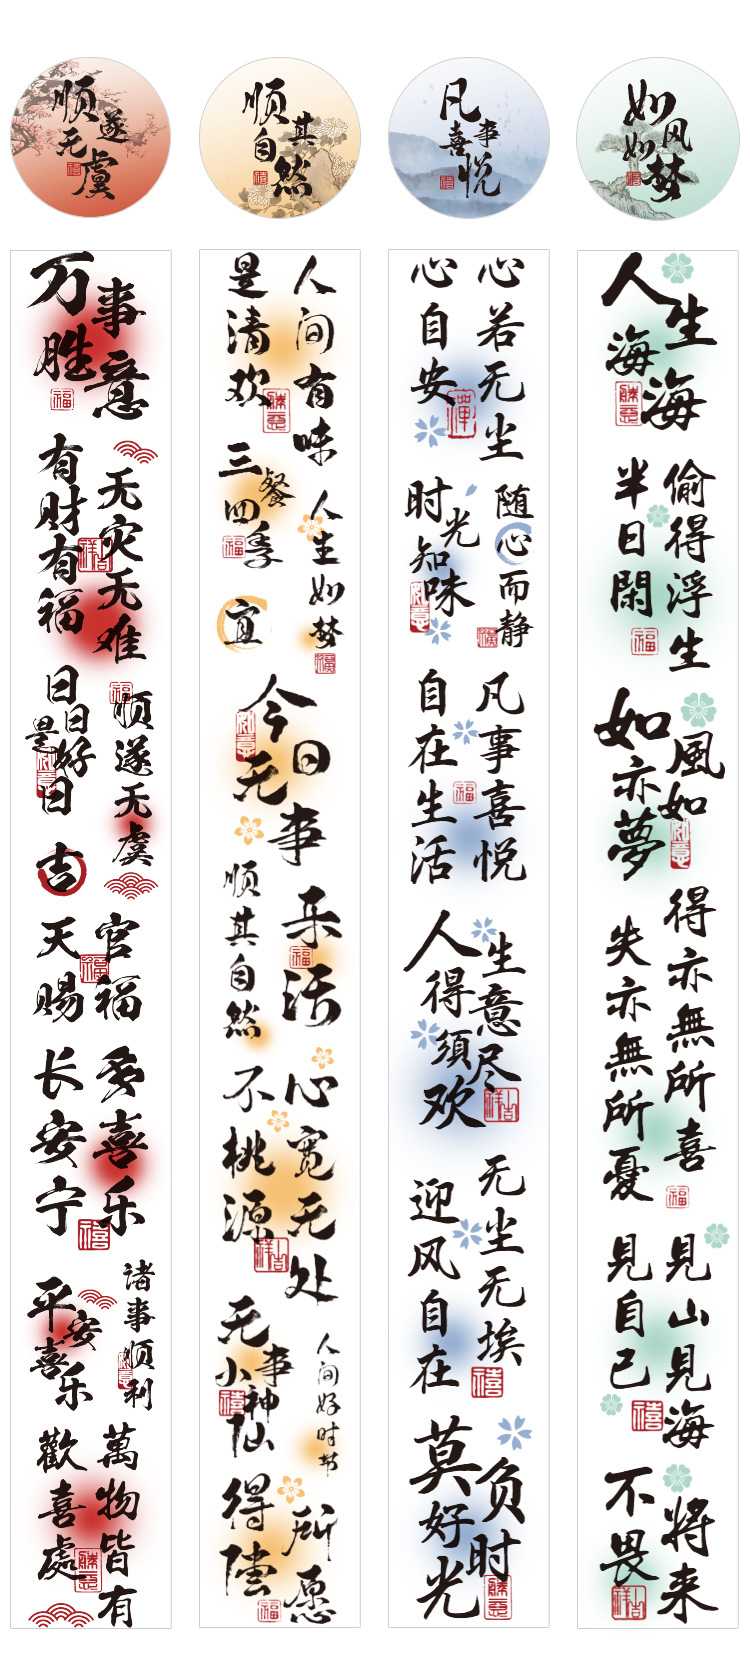 顺遂
无虞
顺其
自然
凡事
喜悦
如风
如梦
万事
胜意
无灾无难
有财有福
顺遂无虞
日日
是好
日
吉
官福
天赐
多喜乐
长安宁
诸事顺利
平安
喜乐
萬物皆有
歡喜處
人间有味
是清欢
三餐
四季
人生如梦
宜
今日
无事
乐活
顺其自然
心宽无处
不桃源
无事
小神仙
人间好时节
所愿
得偿
心若无尘
心自安
时光
知味
随心而静
凡事喜悦
自在生活
人生
得意
须尽
欢
无尘无埃
迎风自在
莫负
好时
光
人生
海海
偷得浮生
半日閑
如風
亦如
夢
得亦無所喜
失亦無所憂
見山見海
見自己
不畏
将来